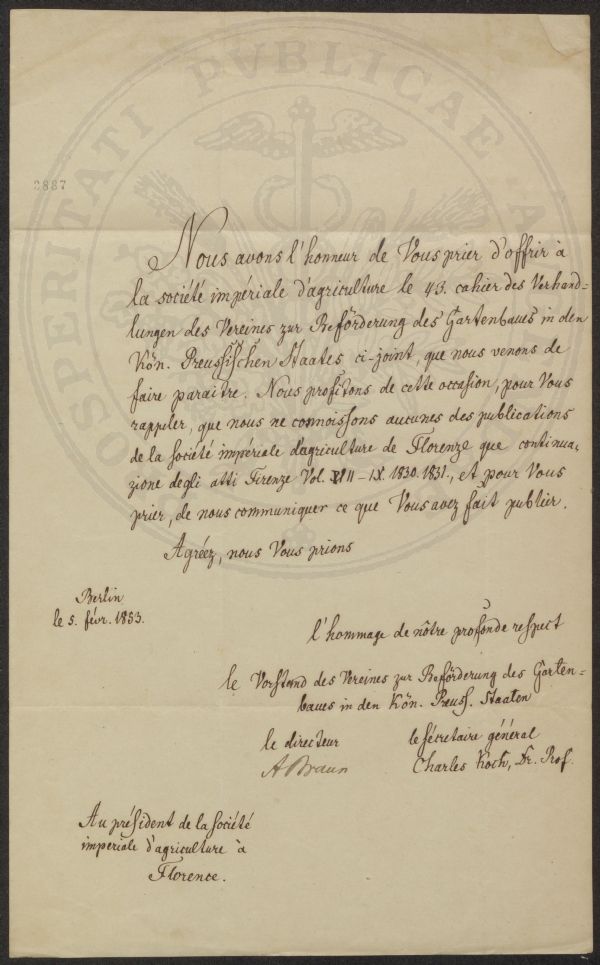 PROSPERITATI PVBLICAE A
2887
Nous avons l'honneur de Vous prier d'offrir à
la société impériale d'agriculture le 43. cahier des Verhand-
lungen des Vereines zur Beförderung des Gartenbaues in den
Kön. Preussischen Staates ci-joint, que nous venons de
faire paraitre. Nous profitons de cette occasion, pour Vous
rappeler, que nous ne connoissons aucunes des publications
de la société impériale d'agriculture de Florenze que continua-
zione degli atti Firenze Vol. VIII-IX. 1830. 1831., et pour Vous
prier, de nous communiquer ce que Vous avez fait publier.
Agréez, nous Vous prions
Berlin
le 5. févr. 1853.
l'hommage de nôtre profonde respect
le Vorstand des Vereines zur Beförderung des Garten-
baues in den Kön. Preuss. Staaten
le directeur
ABraun
le sécretaire général
Charles Koch, Dr. Prof.
Au président de la société
imperiale d'agriculture à
Florence.